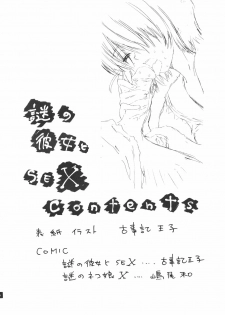 謎の
彼女と
SEX
Contents
表紙 イラスト 古事記王子
COMIC
謎の彼女と SEX .... 古事記王子
謎のネコ娘 X .... 嶋尾 和